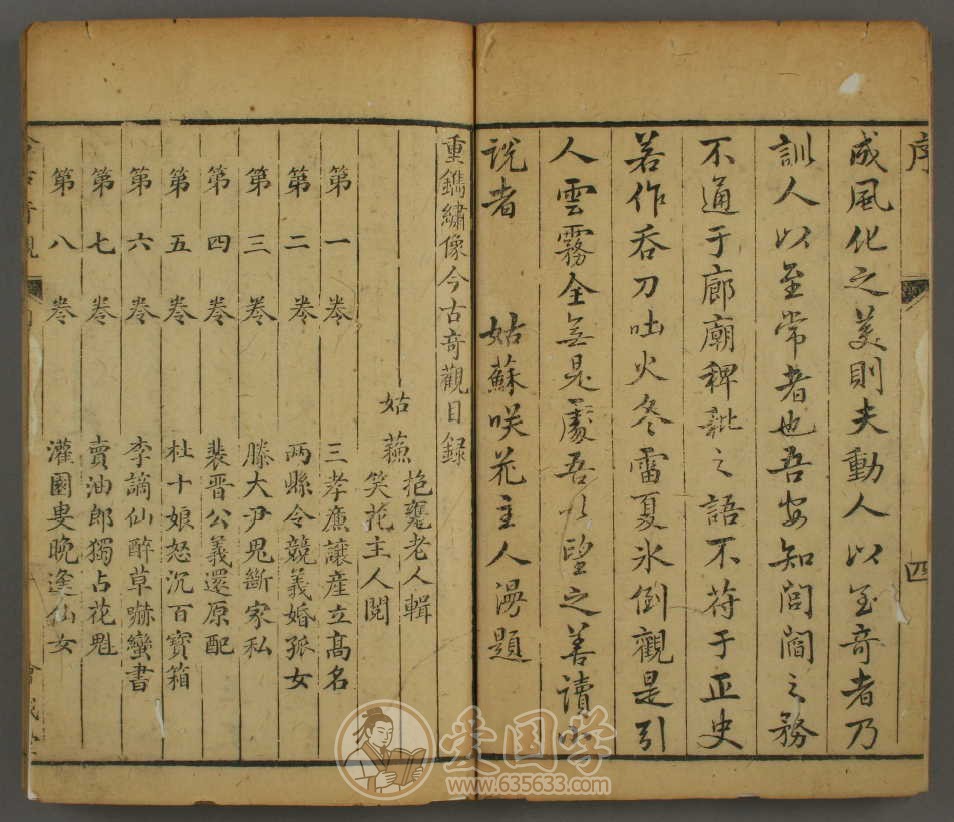 序
四
成風化之美則夫動人以至奇者乃
訓人以至常者也吾安知閭閻之務
不通于廊廟稗秕之語不符于正史
若作吞刀吐火冬雷夏冰倒觀是引
人雲霧全無是處吾以望之善讀小
說者 姑蘇咲花主人漫題
重鐫繡像今古奇觀目録
姑蘇 抱甕老人輯
笑花主人閱
第一卷 三孝廉讓産立高名
第二卷 两縣令競義婚孤女
第三卷 滕大尹鬼斷家私
第四卷 裴晋公義還原配
第五卷 杜十娘怒沉百寳箱
第六卷 李謫仙醉草嚇蠻書
第七卷 賣油郎獨占花魁
第八卷 灌園叟晚逢仙女
爱国学
www.635633.com